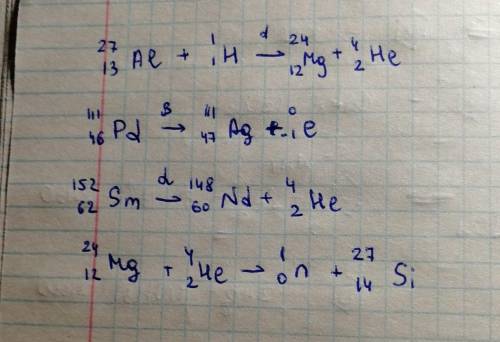 ²⁷₁₃Al + ¹₁H →ᵈ ²⁴₁₂Mg + ⁴₂He
¹¹¹₄₆Pd →ᵝ ¹¹¹₄₇Ag + ⁰₋₁e
¹⁵²₆₂Sm →ᵈ ¹⁴⁸₆₀Nd + ⁴₂He
²⁴₁₂Mg + ⁴₂He → ¹₀n + ²⁷₁₄Si